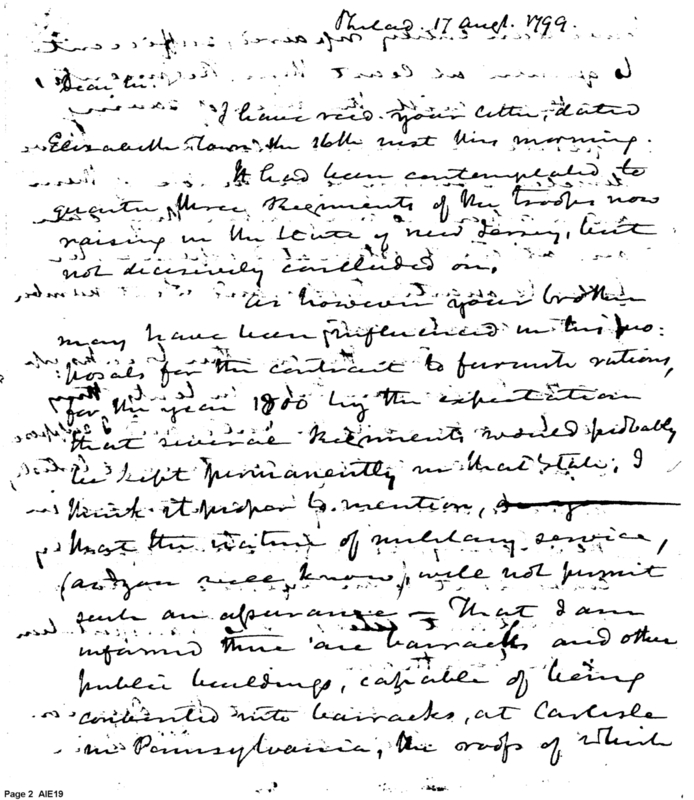 Philad. 17 Augt. 1799.
Dear Sir.
I have recd your letter, dated
Elizabeth Town the 16th inst this morning.
It had been contemplated to
quarter three Regiments of the troops now
raising in the State of New Jersey, but
not decisively concluded on.
As however your brother
may have been influenced in his pro:
:posals for the contract to furnish rations,
for the year 1800 by the expectation
that several Regiments would probably
be kept permanently in that State; I
think it proper to mention,
that the nature of military service,
(as you well know) will not permit
such an assurance — That I am
informed there are barracks and other
public buildings, capable of being
converted into barracks, at Carlisle
in Pennsylvania, the roofs of which
Page 2 AIE19